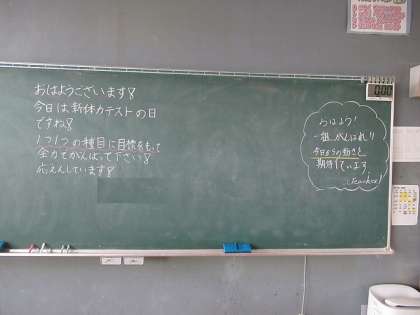 おはようございます!
今日は新体力テストの日
ですね!
1つ1つの種目に目標をもって
全力でがんばって下さい!
応えんしています!
おはよう!
一組がんばれ!!
今日からの動きを
期待しています。
Teacher